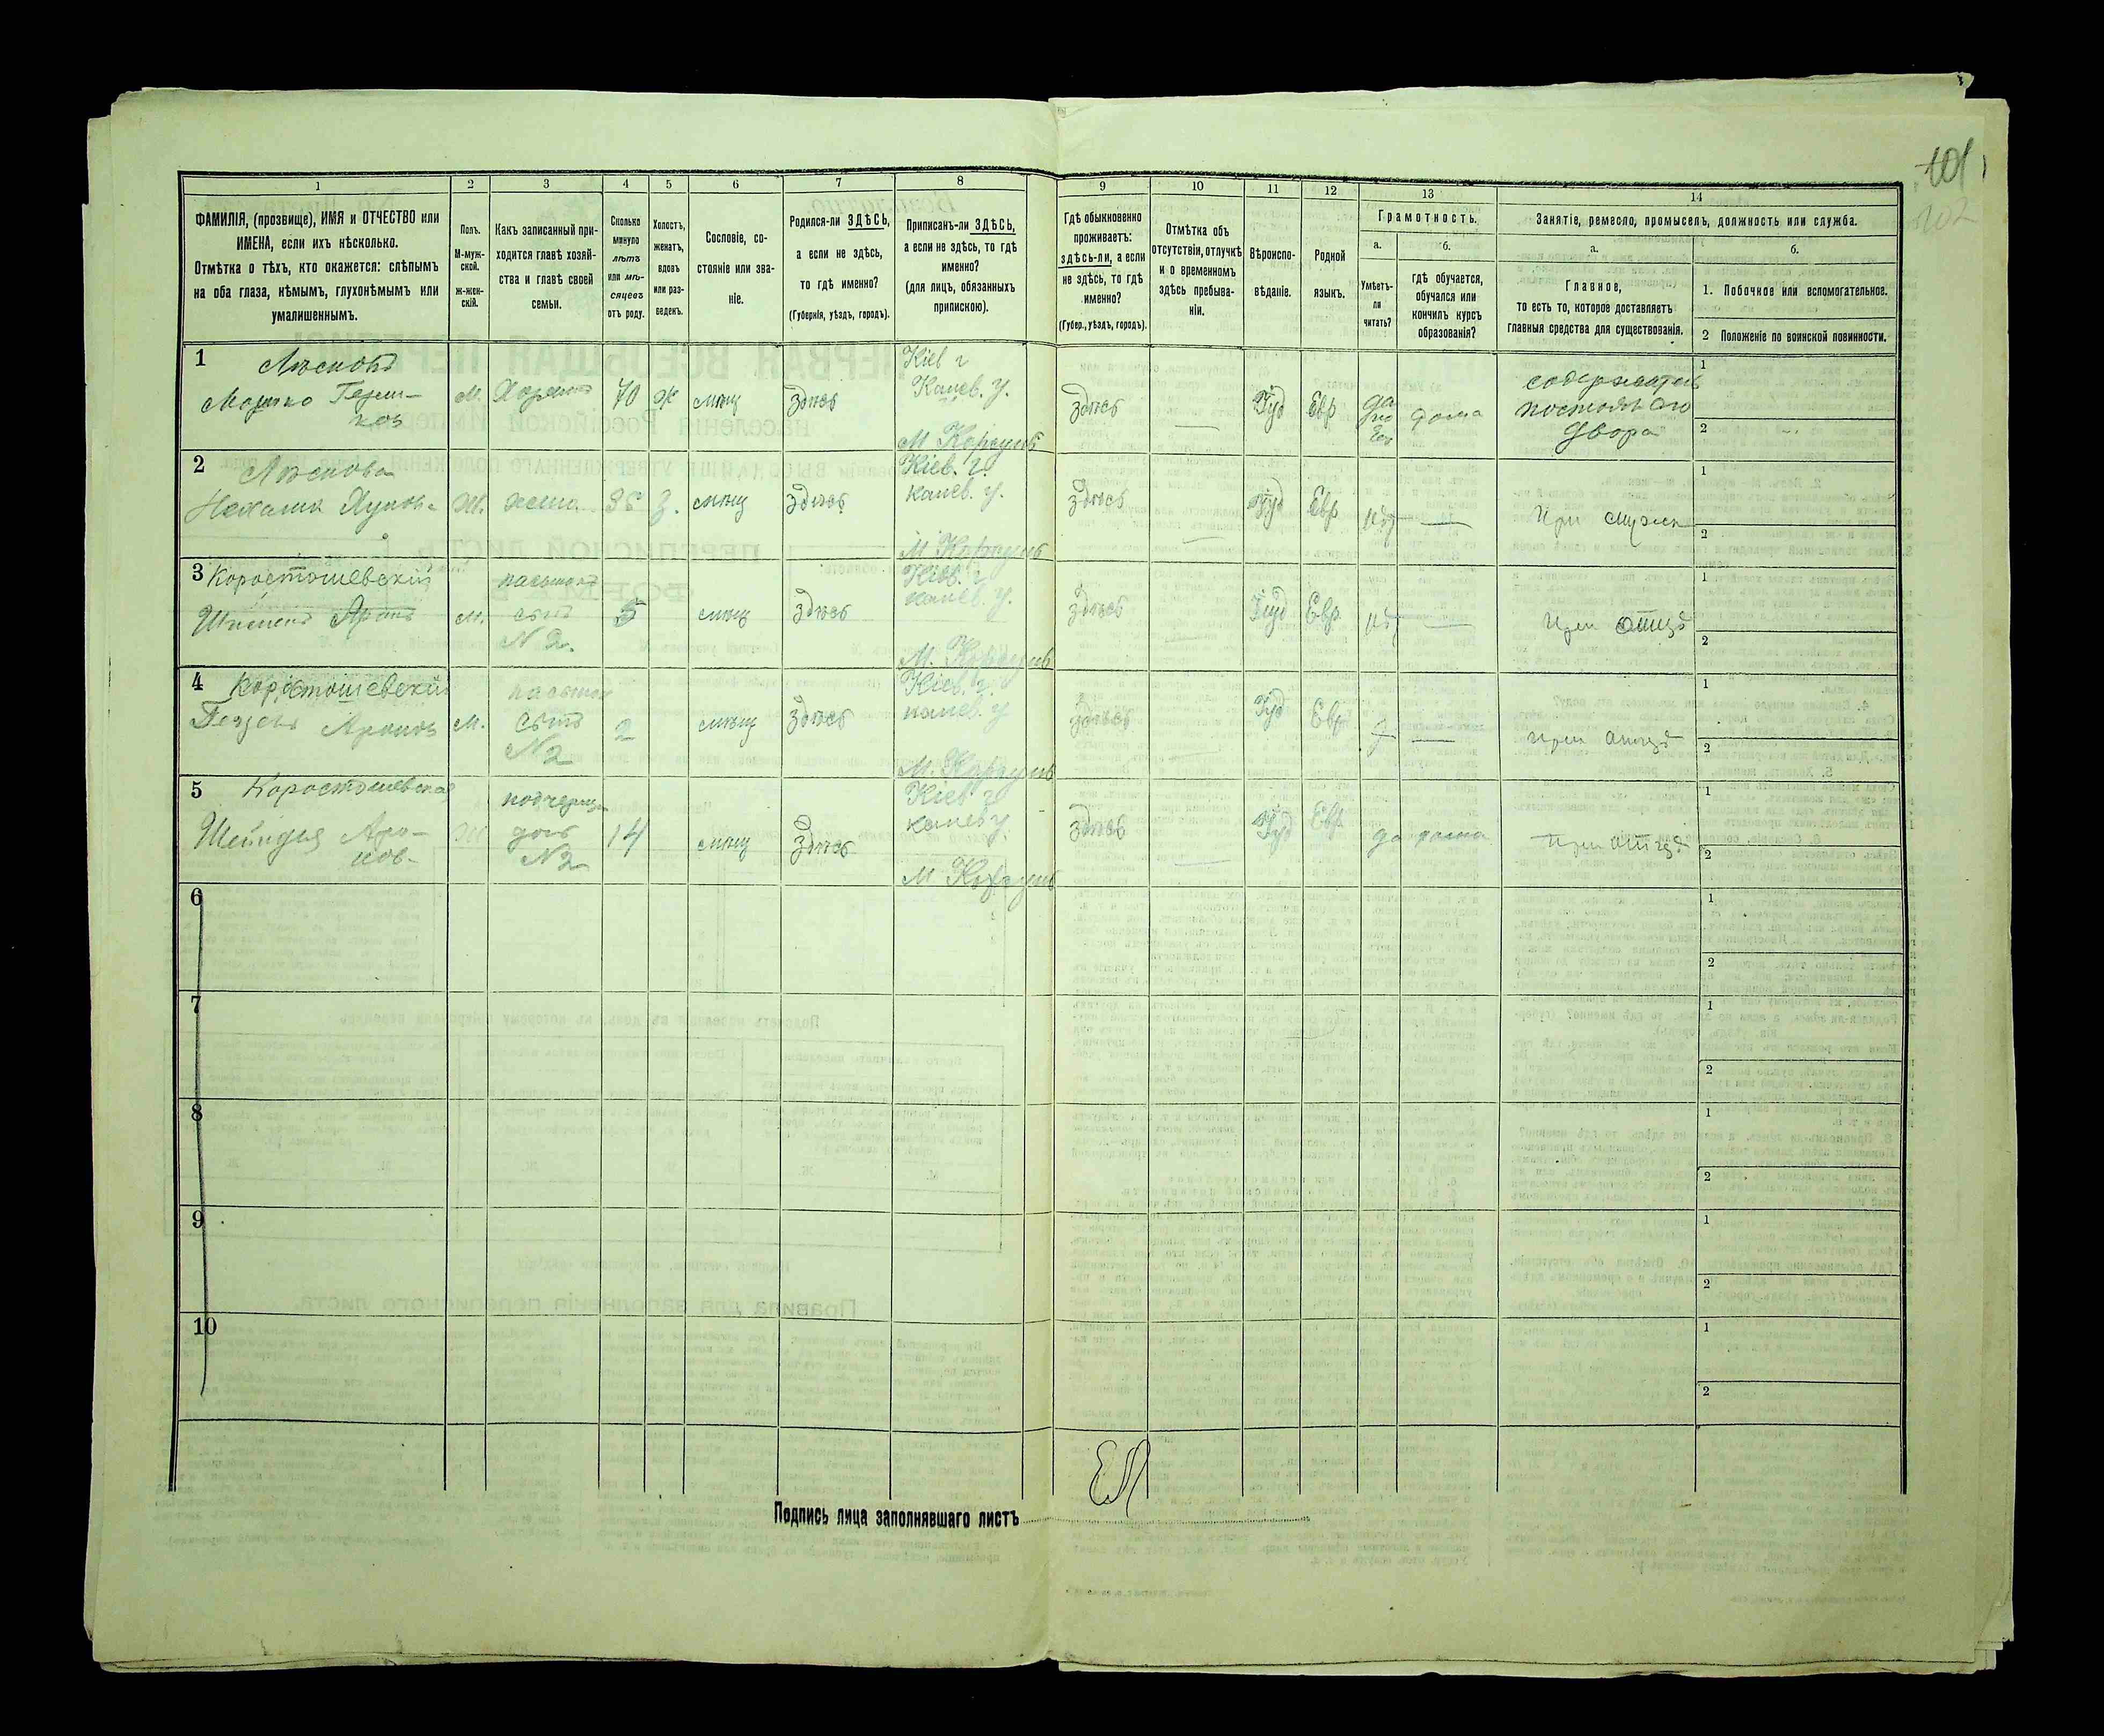 101
102
1
2
3
4
5
6
7
8
9
10
11
12
13
14
ФАМИЛІЯ, (прозвище), ИМЯ и ОТЧЕСТВО или
ИМЕНА, если ихъ нѣсколько.
Отмѣтка о тѣхъ, кто окажется: слѣпымъ
на оба глаза, нѣмымъ, глухонѣмымъ или
умалишеннымъ.
Полъ.
М-муж-
ской.
Ж-жен-
скій.
Какъ записанный при-
ходится главѣ хозяй-
ства и главѣ своей
семьи.
Сколько
минуло
лѣтъ
или мѣ-
сяцевъ
отъ роду.
Холостъ,
женатъ,
вдовъ
или раз-
веденъ.
Сословіе, со-
стояніе или зва-
ніе.
Родился-ли ЗДѢСЬ,
а если не здѣсь,
то гдѣ именно?
(Губернія, уѣздъ, городъ).
Приписанъ-ли ЗДѢСЬ,
а если не здѣсь, то гдѣ
именно?
(для лицъ, обязанныхъ
припискою).
Гдѣ обыкновенно
проживаетъ:
здѣсь-ли, а если
не здѣсь, то гдѣ
именно?
(Губер., уѣздъ, городъ).
Отмѣтка объ
отсутствіи, отлучкѣ
и о временномъ
здѣсь пребыва-
ніи.
Вѣроиспо-
вѣданіе.
Родной
языкъ.
Грамотность.
а.
Умѣетъ-
ли
читать?
б.
гдѣ обучается,
обучался или
кончилъ курсъ
образованія?
Занятіе, ремесло, промыселъ, должность или служба.
а.
Главное,
то есть то, которое доставляетъ
главныя средства для существованія.
б.
1. Побочное или вспомогательное.
2 Положеніе по воинской повинности.
1
Мошко Герш-
ков
М.
70
ж
мѣщ
здѣсь
Кіев г
Канев. у.
М Корсунь
здѣсь
—
Іуд
Евр
да
по
Евр
дома
содержатель
постоялаго
двора
1
2
2
Ж.
жена
35
З.
мѣщ
здѣсь
Кіев. г.
канев. у.
М Корсунь
здѣсь
—
Іуд
Евр
нѣт
—
При мужѣ
1
2
3 Коростышевскій
М.
сынъ
N 2.
5
мѣщ
здѣсь
Кіев. г
канев. у.
М. Корсунь
здѣсь
Іуд
Евр
нѣт
—
при отцѣ
1
2
4 Коростышевскій
Аронов
М.
сынъ
N 2
2
мѣщ
здѣсь
Кіев. г.
канев. у
М. Корсунь
здѣсь
Іуд
Евр
—
при отцѣ
1
2
5 Коростышевская
Шейндля Аро-
нов.
Ж
дочь
N 2
14
мѣщ
здѣсь
Кіев г
канев у.
М Корсунь
здѣсь
—
Іуд
Евр
да дома
при отцѣ
1
2
6
1
2
7
1
2
8
1
2
9
1
2
10
1
2
Подпись лица заполнявшаго листъ